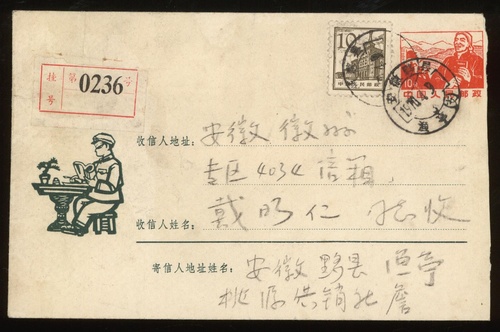 10
中国人民邮政
10
挂号
第0236号
收信人地址:安徽徽州
专区4034信箱
收信人姓名:戴明仁 张收
寄信人地址姓名:安徽黟县渔亭
桃源供销社詹